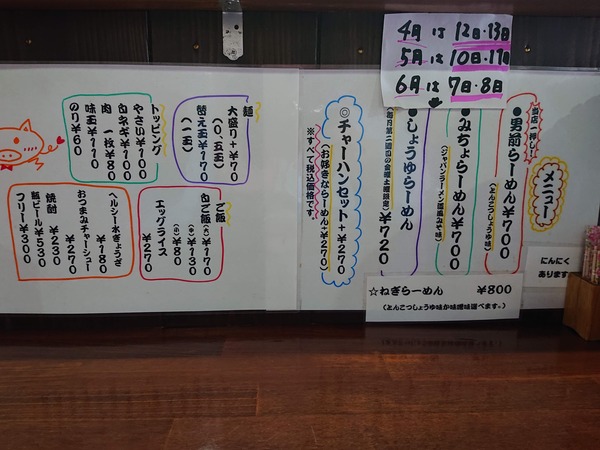 4月は12日・13日
5月は10日・11日
6月は7日・8日
メニュー
当店一押し!
●男前らーめん¥700
(とんこつしょうゆ味)
●みちょらーめん¥700
(ジャパンラーメン風みそ味)
●しょうゆらーめん
¥720
◎チャーハンセット+¥270
(お好きならーめん+¥270)
※すべて税込価格です。
☆ねぎらーめん ¥800
(とんこつしょうゆ味か味噌味選べます。)
にんにく
あります
麺
大盛り+¥70
(0、五玉)
替え玉¥170
(一玉)
トッピング
やさい¥100
白ネギ¥100
肉 一枚¥80
味玉¥110
のり¥60
ご飯
白ご飯(大)¥170
(中)¥130
(小)¥80
エッグライス
¥270
ヘルシー水ぎょうざ
¥180
おつまみチャーシュー
¥270
焼酎 ¥230
瓶ビール¥530
フリー¥300